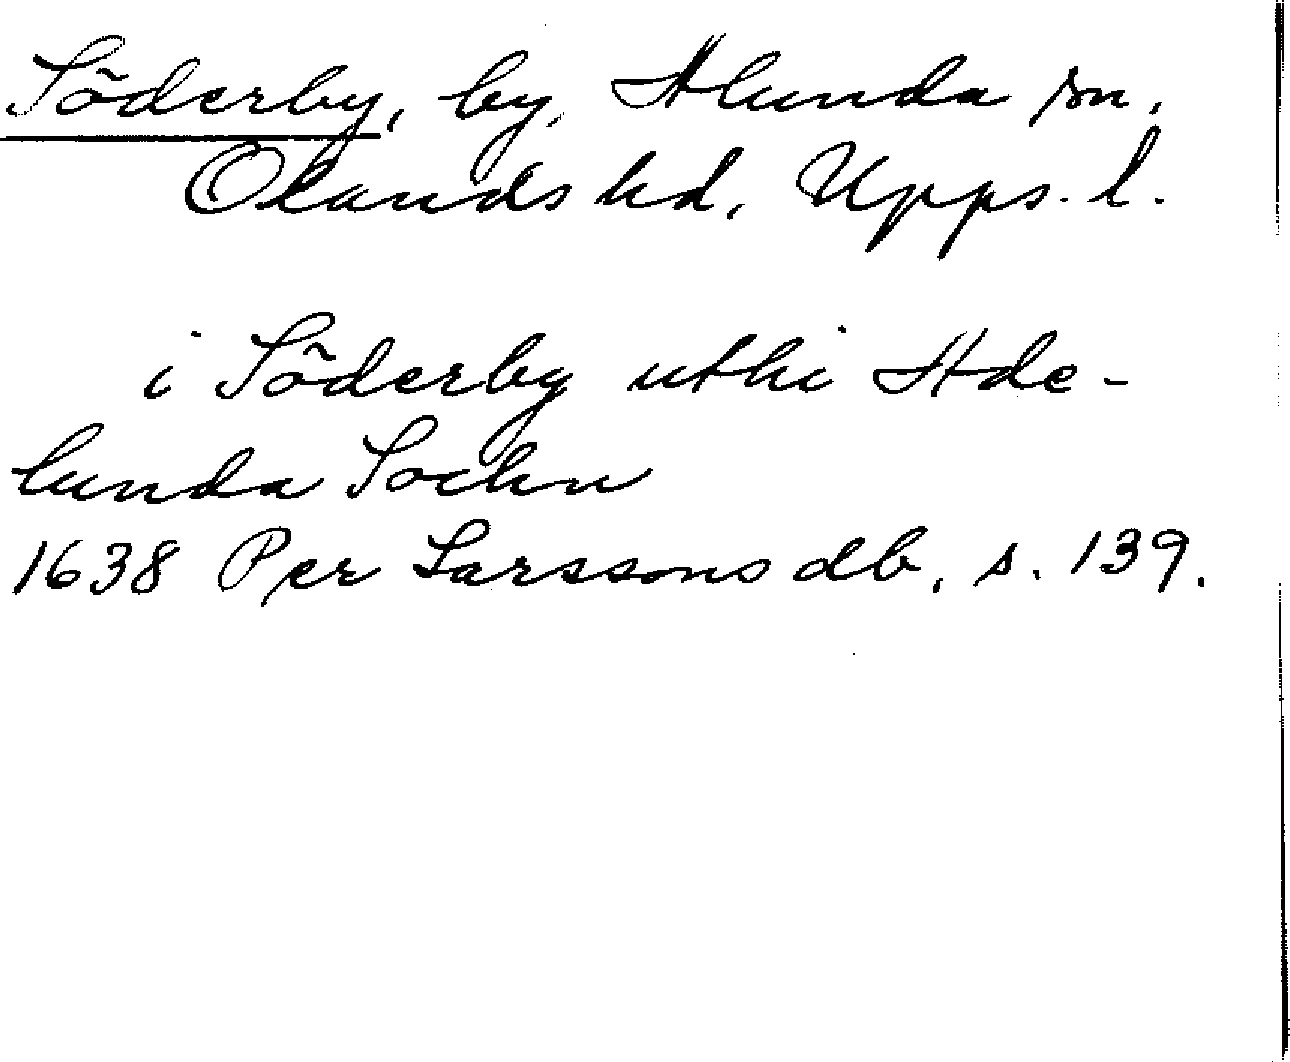 Söderby, by, Alunda sn,
Olands hd, Upps. l.
i Söderby uthi Ade-
lunda Sochn
1638 Per Larssons db, s. 139.